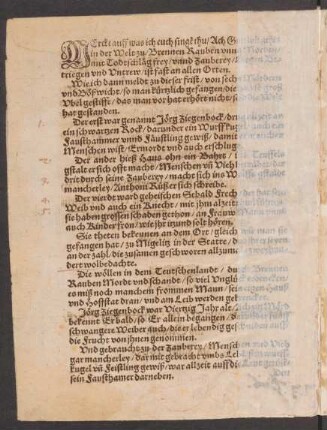 MErckt auff was ich euch singe thu / Ach G
in der Welt zu Brennen Rauben vnnd
mit Todtschläg frey / vnnd Zauberey /
triegen vnd Vntrew / ist fast an allen Orten.
Wie ich dann meldt zu dieser frist / von sech
vnd Bößwicht / so man kürtzlich gefangen / die
Vbel gestifft / das man vor hat erhört nicht / s
har gestanden.
Der erst war genannt Jörg Ziegenbock / dru
ein schwartzen Rock / darunder ein Wurffkugel /
Fausthammer vnnd Fäustling gewiß / damit
Menschen wist / Ermordt vnd auch erschlug
Der ander hieß Hans ohn ein Bahrt /
gstalt er sich offt macht / Menschen vñ Viehl
dritt durch seine Zauberey / macht sich ins W
mancherley / Anthoni Küßler sich schreibe.
Der vierdt ward geheischen Sebald Frech
Weib vnd auch ein Knecht / mit jhm alzeit
sie haben grossen schaden gethon / an Frauw
auch Kinder fron / wie jhr jnund solt hören.
Sie theten bekennen an dem Ort / gleich
gefangen hat / zu Migelitz in der Statte / d
an der zahl / die zusamen geschworen all zum
dert wolbedachte.
Die wöllen in dem Teutschenlandt / du
Rauben Mordt vnd schande / so viel Vngl
es miß noch manchem frommen Mann / sei
vnd Hoffstat dran / vnd am Leib werden gek
Jörg Ziegenbock vor Viertzig Jahr alt /
bekennt Er bald / so Er allein begangen / d
schwangere Weiber auch / die er lebendig ges
die Frucht von jhnen genommen.
Vnd gebraucht zu der Zauberey / Mensch
gar mancherley / darmit gebracht vmbs Leb
kugel vñ Feistling gewiß / war allzeit auff di
sein Fausthamer darneben.